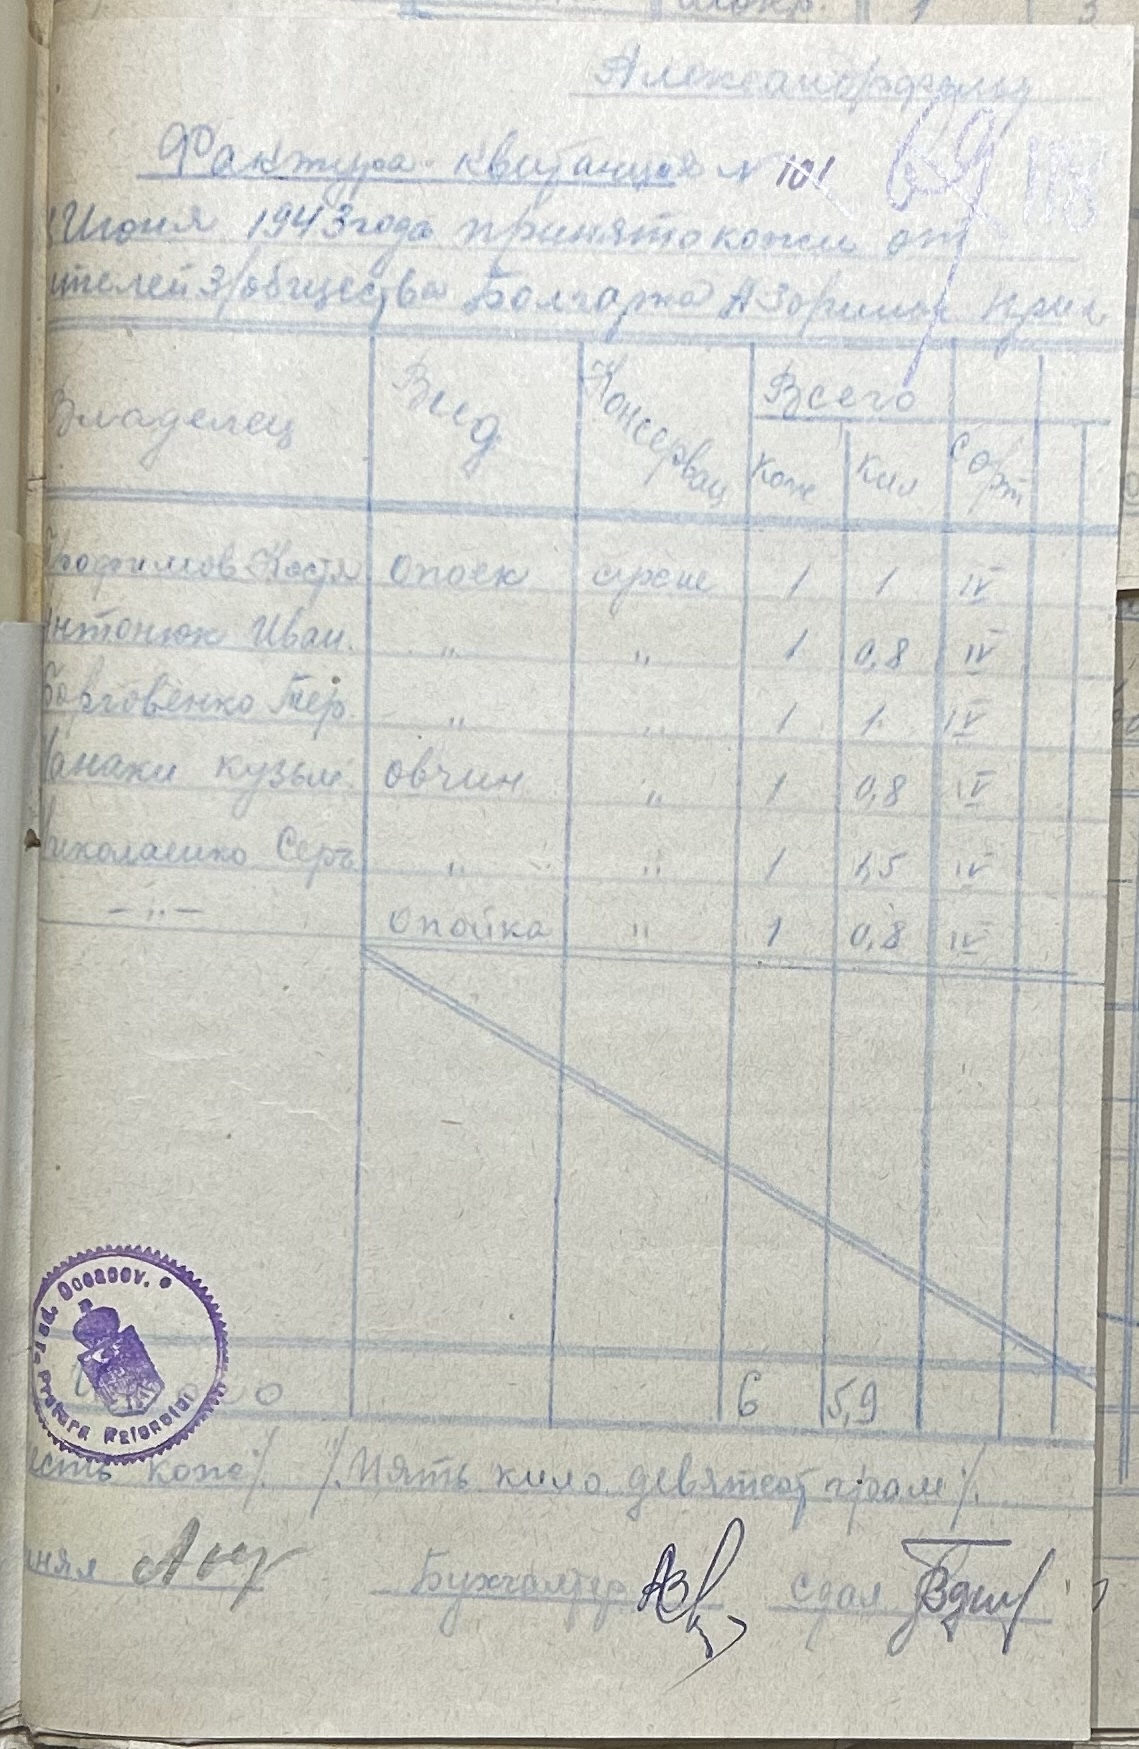 Александрфельд
Фактура-квитанция № 101 69 118
Июня 1943 года принято кожи от
ителей З/общества Болгарка
Владелец Вид Консервац Всего Сорт
Кож Кил
Трофимов Костя Опоек сухсие 1 1 IV
Антонюк Иван. " " 1 0,8 IV
Борговенко Тер. " " 1 1. IV
Манаки кузьм. овчин " 1 0,8 IV
Николаенко Серг. " " 1 1,5 IV
–"– Опойка " 1 0,8 IV
6 5,9
Pretura Raionului
есть кож./. ./. Пять кило девятсот грам./.
инял Бухгалтер сдал